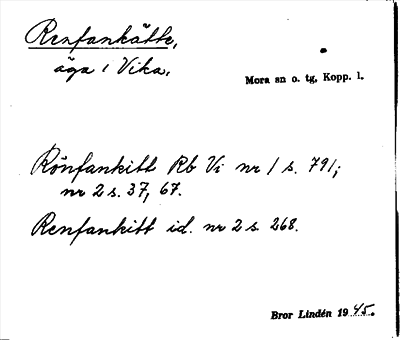 Renfankätte,
äga i Vika.
Mora sn o. tg, Kopp. l.
Rönfankitt Rb Vi nr 1 s. 791;
nr 2 s. 37, 67.
Renfankitt id. nr 2 s. 268.
Bror Lindén 1945.